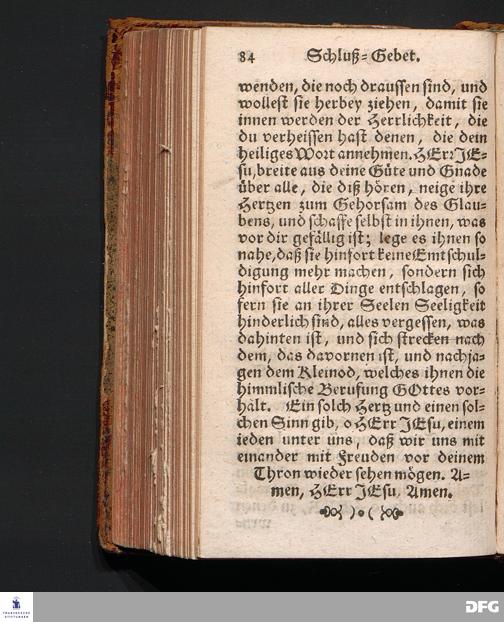 84 Schluß-Gebet.
wenden, die noch draussen sind, und
wollest sie herbey ziehen, damit sie
innen werden der Herrlichkeit, die
du verheissen hast denen, die dein
heiliges Wort annehmen. HErr JE-
su, breite aus deine Güte und Gnade
über alle, die diß hören, neige ihre
Hertzen zum Gehorsam des Glau-
bens, und schaffe selbst in ihnen, was
vor dir gefällig ist; lege es ihnen so
nahe, daß sie hinfort keine Emtschul-
digung mehr machen, sondern sich
hinfort aller Dinge entschlagen, so
fern sie an ihrer Seelen Seeligkeit
hinderlich sind, alles vergessen, was
dahinten ist, und sich strecken nach
dem, das davornen ist, und nachja-
gen dem Kleinod, welches ihnen die
himmlische Berufung GOttes vor-
hält. Ein solch Hertz und einen sol-
chen Sinn gib, o HErr JEsu, einem
ieden unter uns, daß wir uns mit
einander mit Freuden vor deinem
Thron wieder sehen mögen. A-
men, HErr JEsu, Amen.
FRANCKESCHE
STIFTUNGEN
DFG